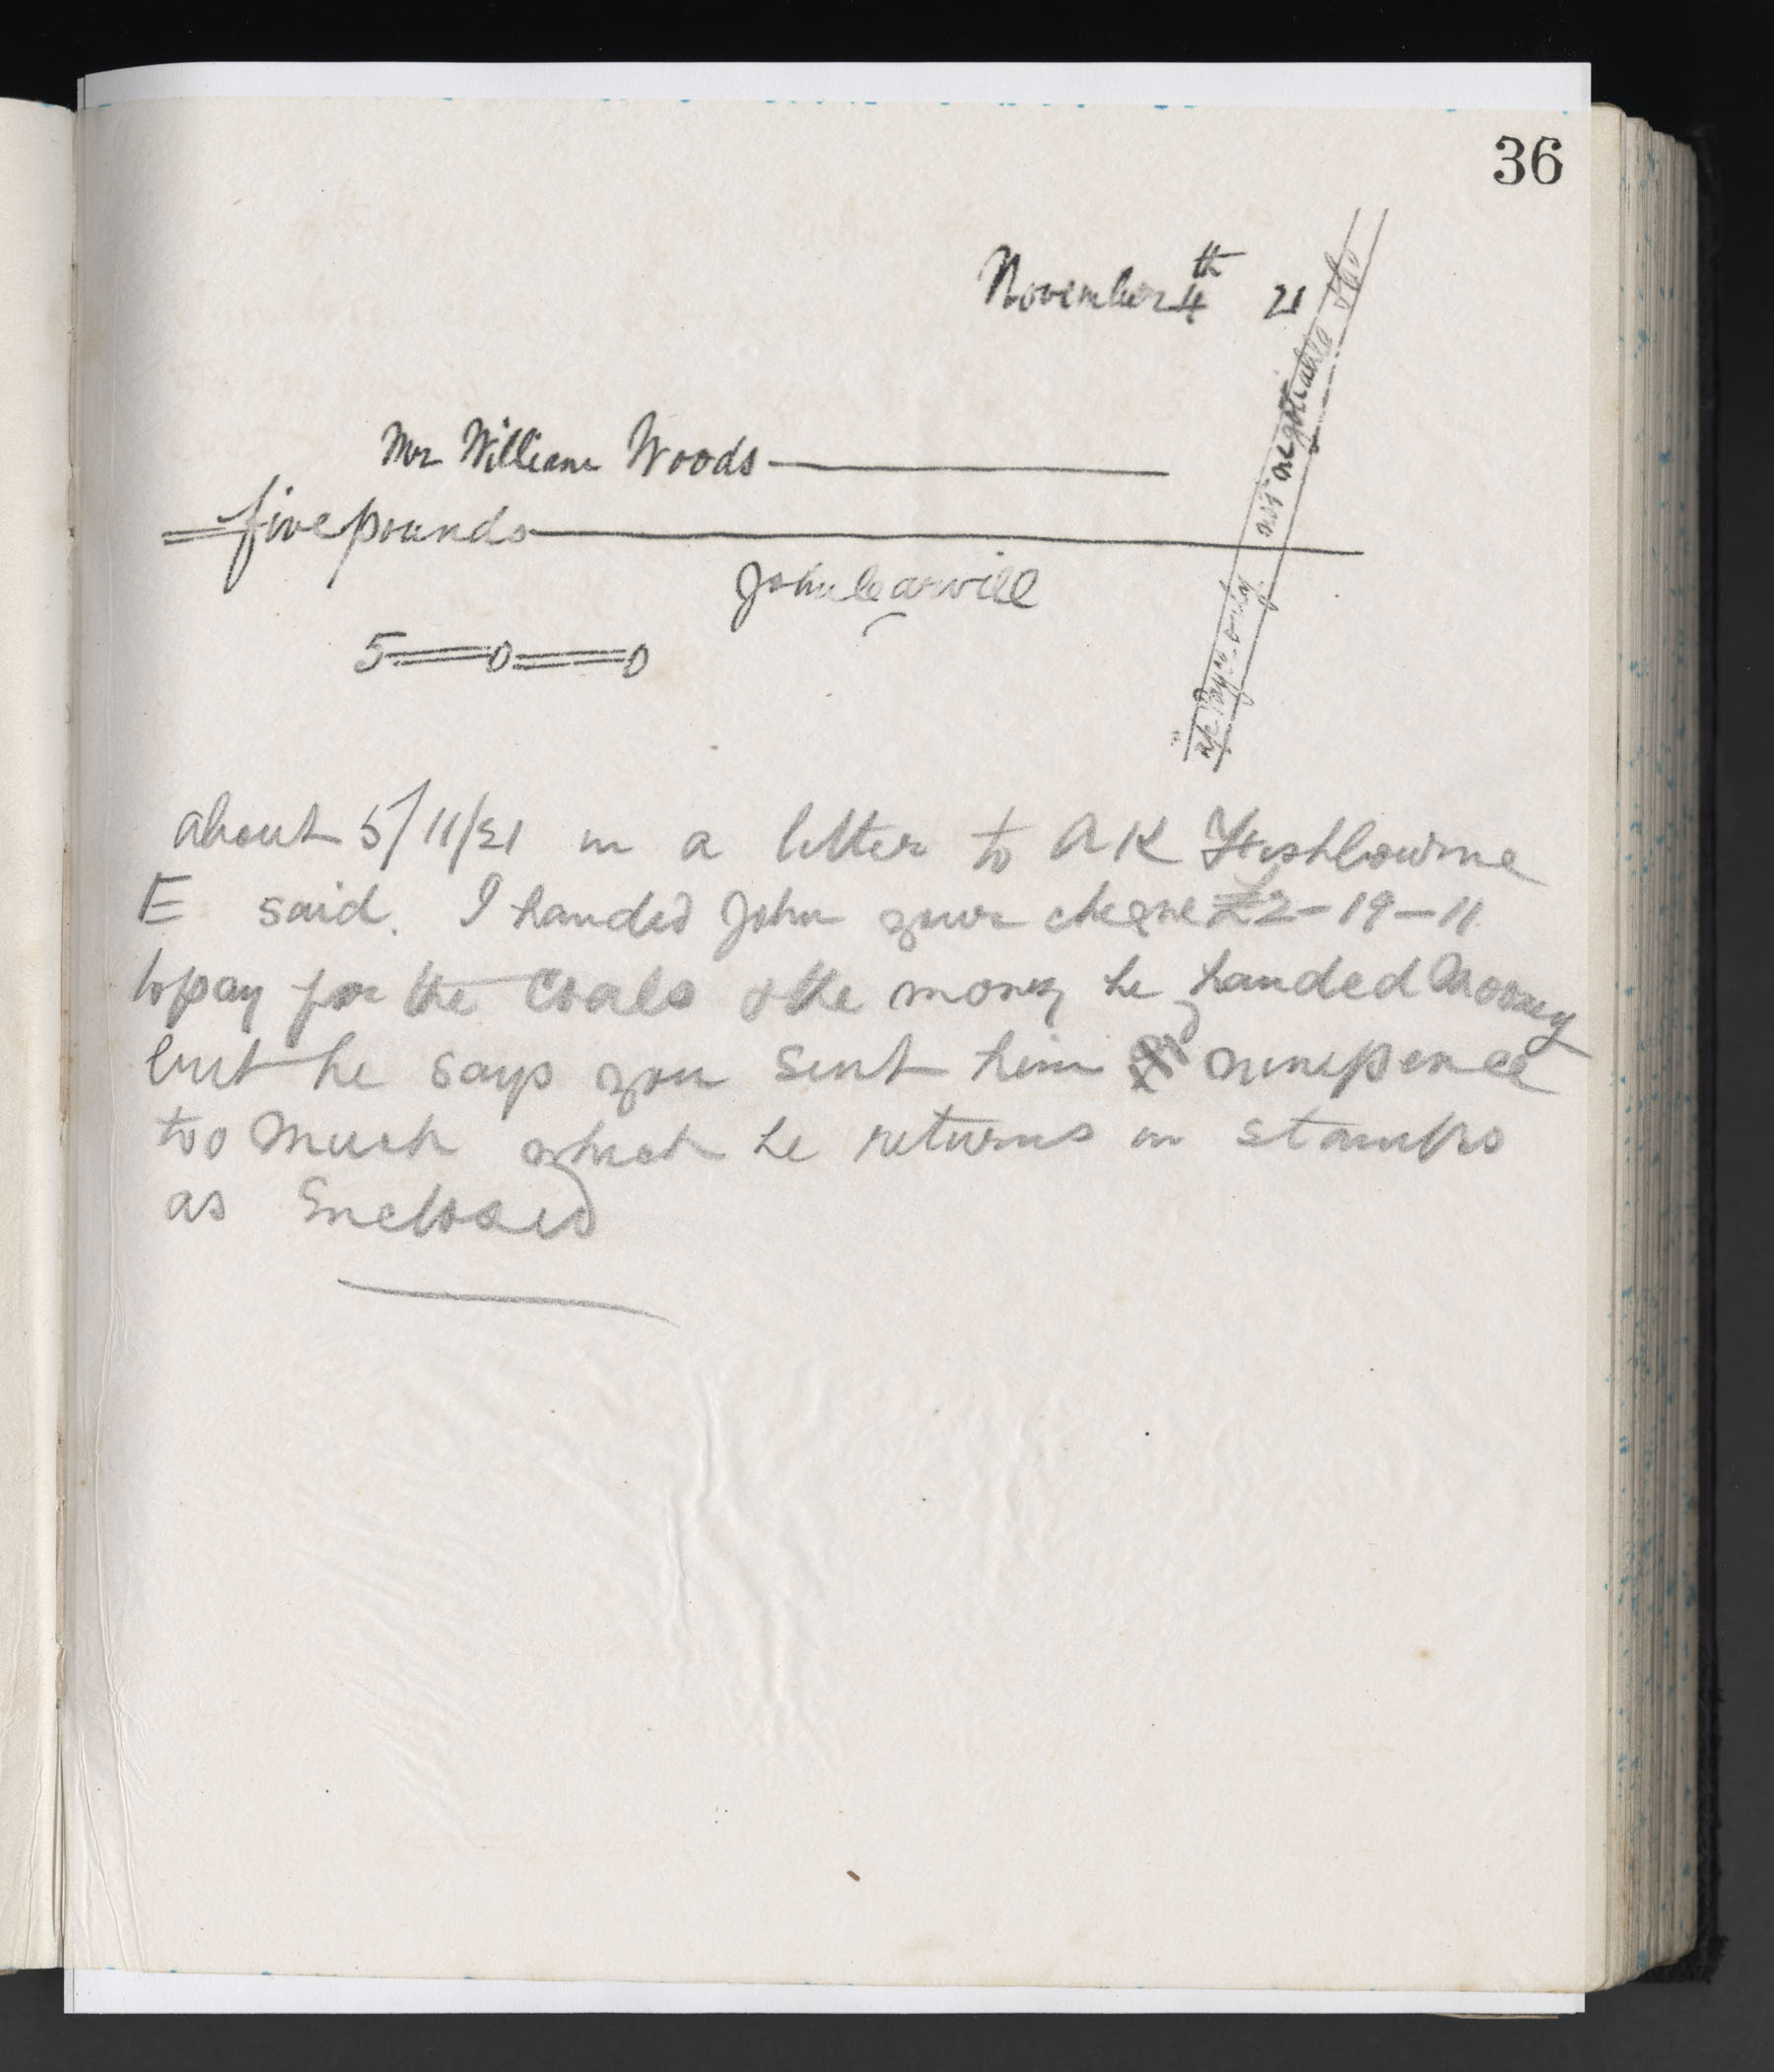 36
November 4th 21
Mr William Woods
five pounds
John Carvill
5 = 0 = 0
a/c Payee only. not negotiable
about 5/11/21 in a letter to A K Fishbourne
E said. I handed John your cheque £2-19-11
to pay for the Coals & the money he handed Mooney
but he says you sent him ninepence
too much which he returns in stamps
as Enclosed